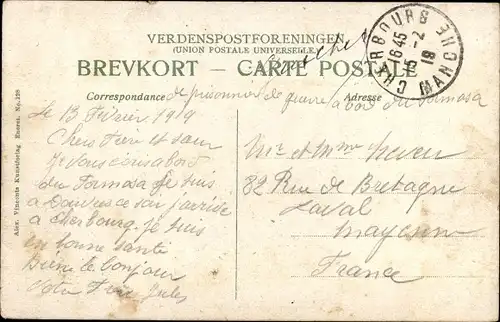 VERDENSPOSTFORENINGEN
(UNION POSTALE UNIVERSELLE)
BREVKORT – CARTE POSTALE
CHERBOURG
1645
15-2
18
MANCHE
Correspondance de prisonnier de guerre
Adresse a bord du Formosa
le 13 Février 1919
Chers Frère et sœur
Je vous écris a bord
du Formosa Je suis
a
a Cherbourg. Je suis
en bonne santé
Bien le bonjour
Votre Frère Jules
Mr et Mme
82 Rue de Bretagne
Laval
Mayenne
France
Alex. Vincents Kunstforlag Eneret. No. 128